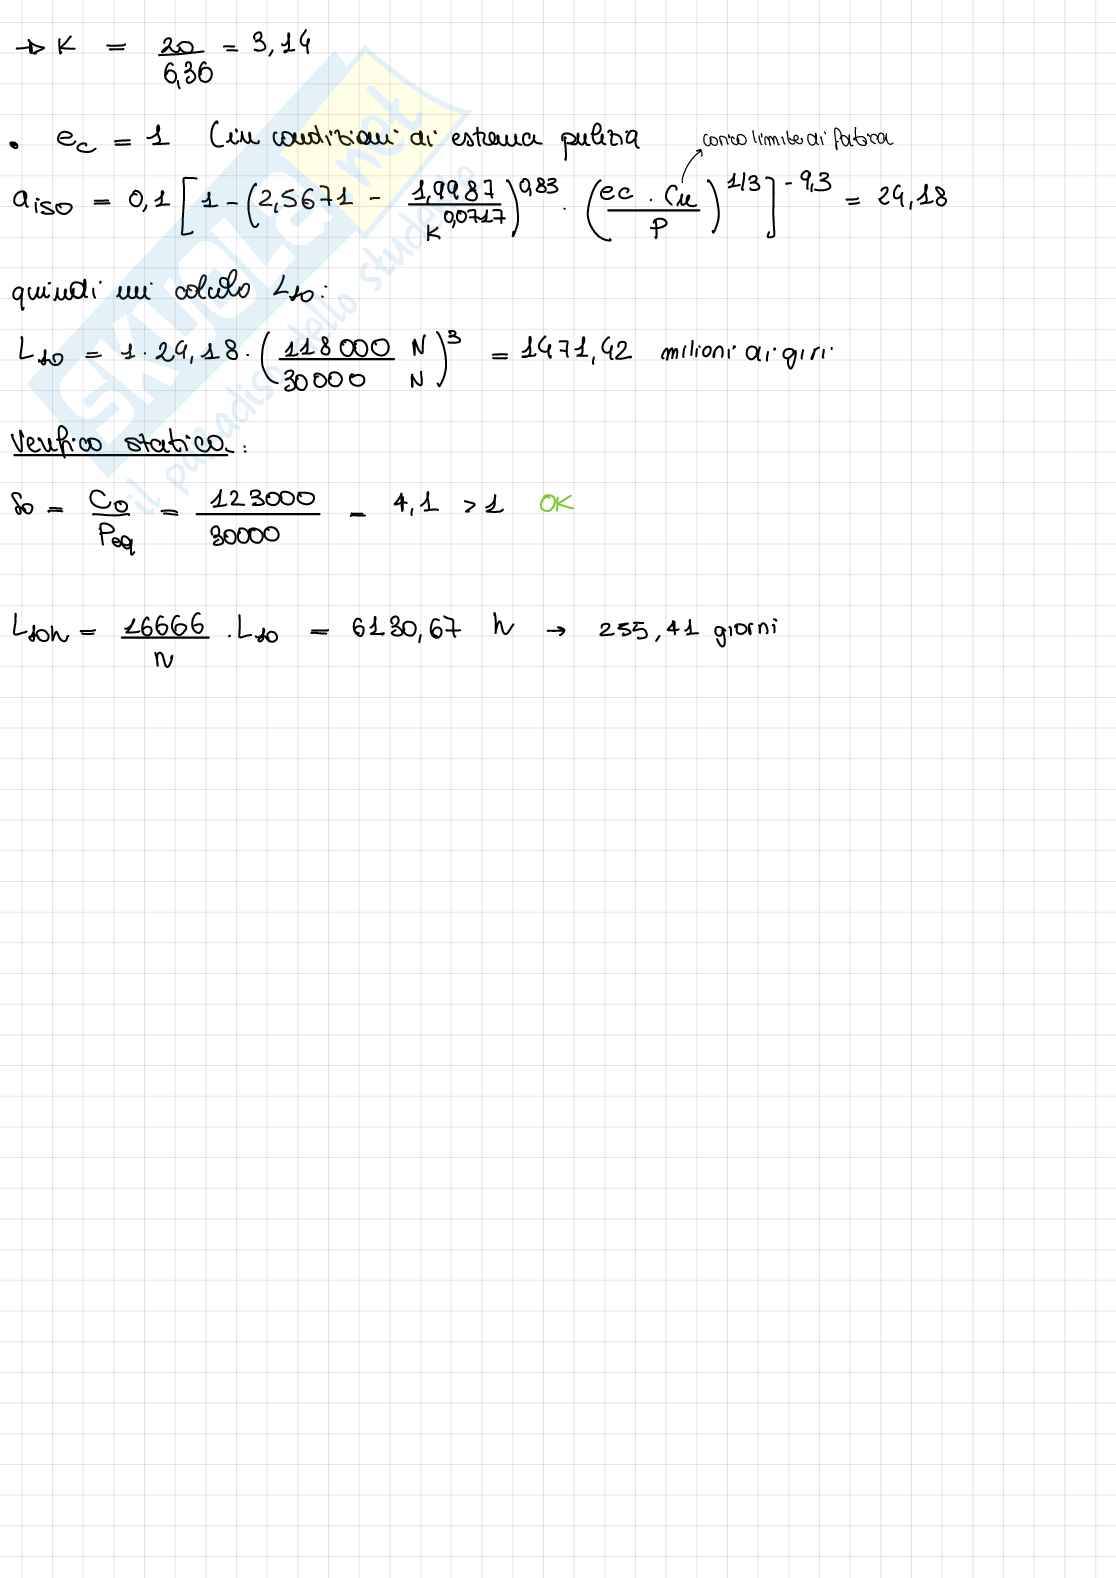 → K = 20/6,36 = 3,14
• ec = 1 (in condizioni di estrema pulizia
carico limite di fatica
aiso = 0,1 [1 - (2,5671 - 1,9987/K^0,0717)^0,83 · (ec · Cu/P)^1/3]^-9,3 = 24,18
quindi mi calcolo L10:
L10 = 1 · 24,18 · (118000 N/30000 N)^3 = 1471,42 milioni di giri
Verifica statica:
S0 = C0/Peq = 123000/30000 = 4,1 > 1 OK
L10h = 16666/n · L10 = 6130,67 h → 255,41 giorni
SKUOLA.not
il paradiso dello studente